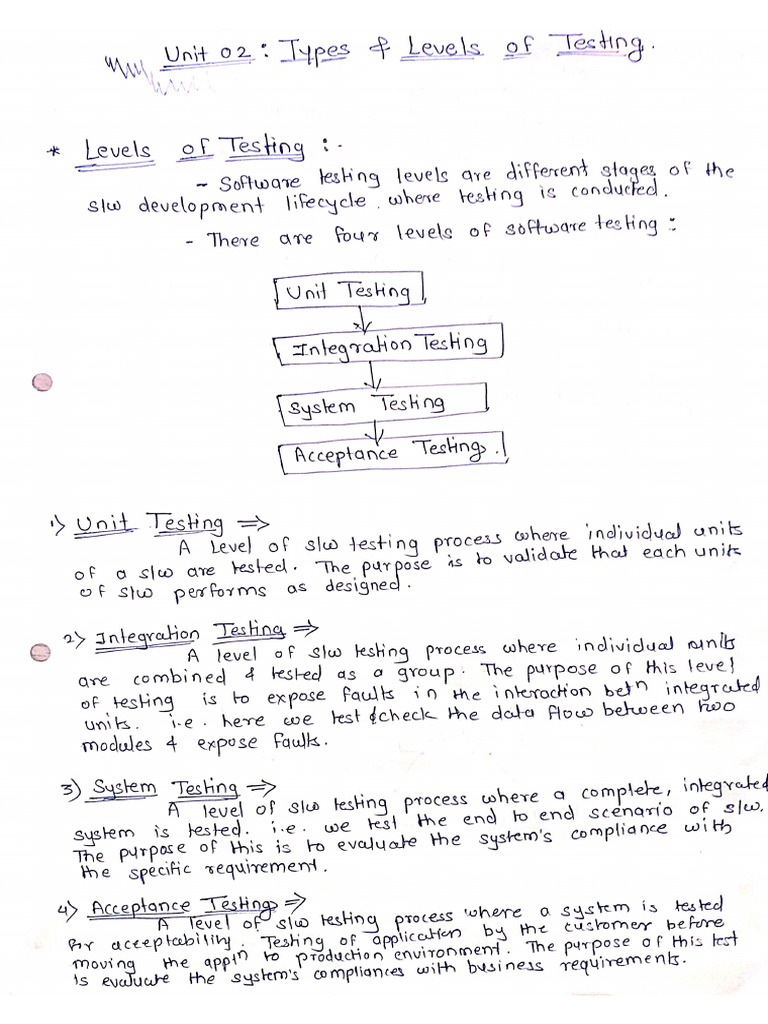 Unit 02 : Types & Levels of Testing.
* Levels of Testing :-
- Software testing levels are different stages of the
s/w development lifecycle where testing is conducted.
- There are four levels of software testing :
Unit Testing
Integration Testing
System Testing
Acceptance Testing.
1) Unit Testing ⇒
A Level of s/w testing process where individual units
of a s/w are tested. The purpose is to validate that each units
of s/w performs as designed.
2) Integration Testing ⇒
A level of s/w testing process where individual units
are combined & tested as a group. The purpose of this level
of testing is to expose faults in the interaction betn integrated
units. i.e. here we test & check the data flow between two
modules & expose faults.
3) System Testing ⇒
A level of s/w testing process where a complete, integrated
system is tested. i.e. we test the end to end scenario of s/w.
The purpose of this is to evaluate the system's compliance with
the specific requirement.
4) Acceptance Testing ⇒
A level of s/w testing process where a system is tested
for acceptability. Testing of application by the customer before
moving the appln to production environment. The purpose of this test
is evaluate the system's compliances with business requirements.